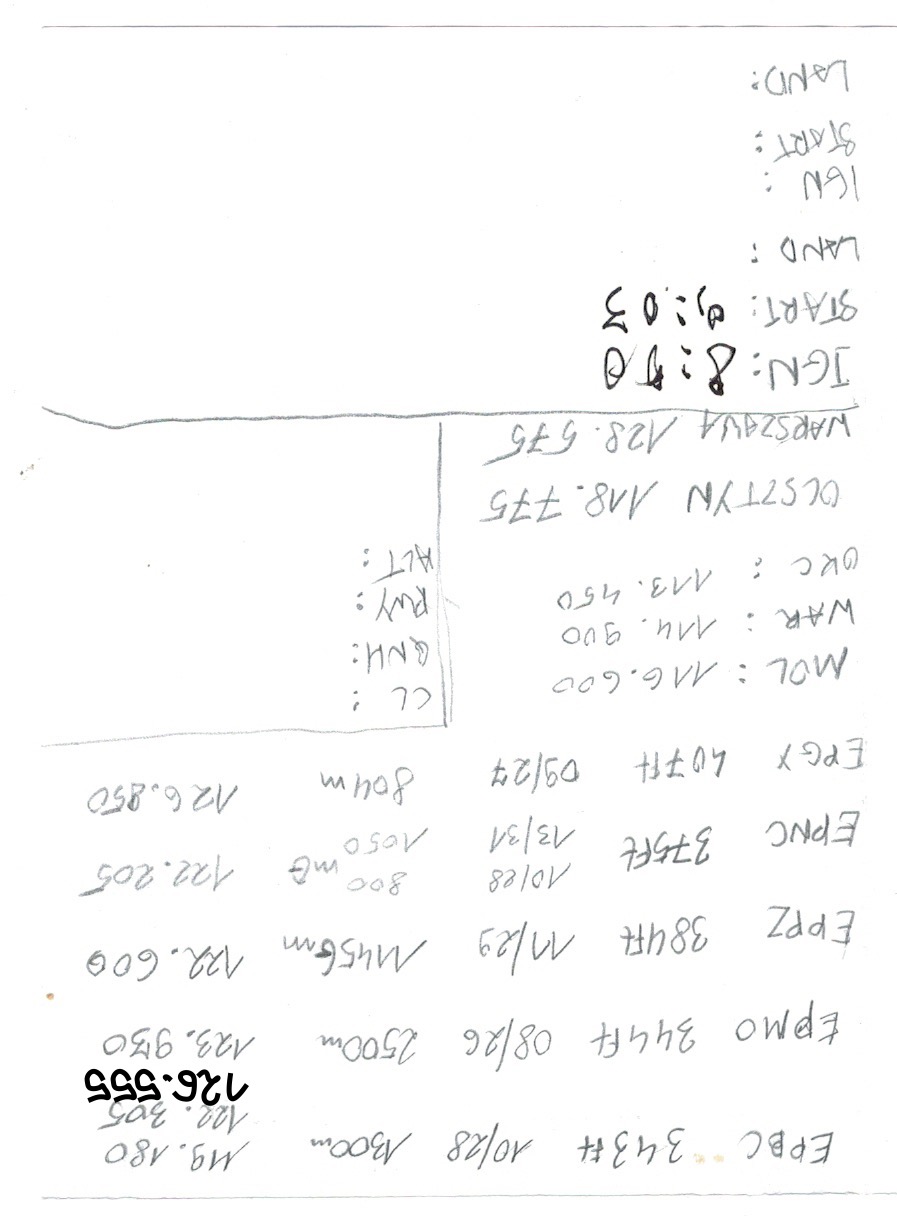 EPBC 343ft 10/28 1300m 119.180
122.305
126.555
EPMO 344ft 08/26 2500m 123.930
EPPZ 384ft 11/29 1145Gm 122.600
EPNC 375ft 10/28 800 mG 122.205
13/31 1050
EPGY 407ft 09/27 804m 126.850
MOL : 116.600
WAR : 114.900
OKC : 113.450
OLSZTYN 118.775
WARSZAWA 128.575
CL :
QNH:
RWY :
ALT :
IGN: 8:10
START: 9:03
LAND :
IGN :
START:
LAND: